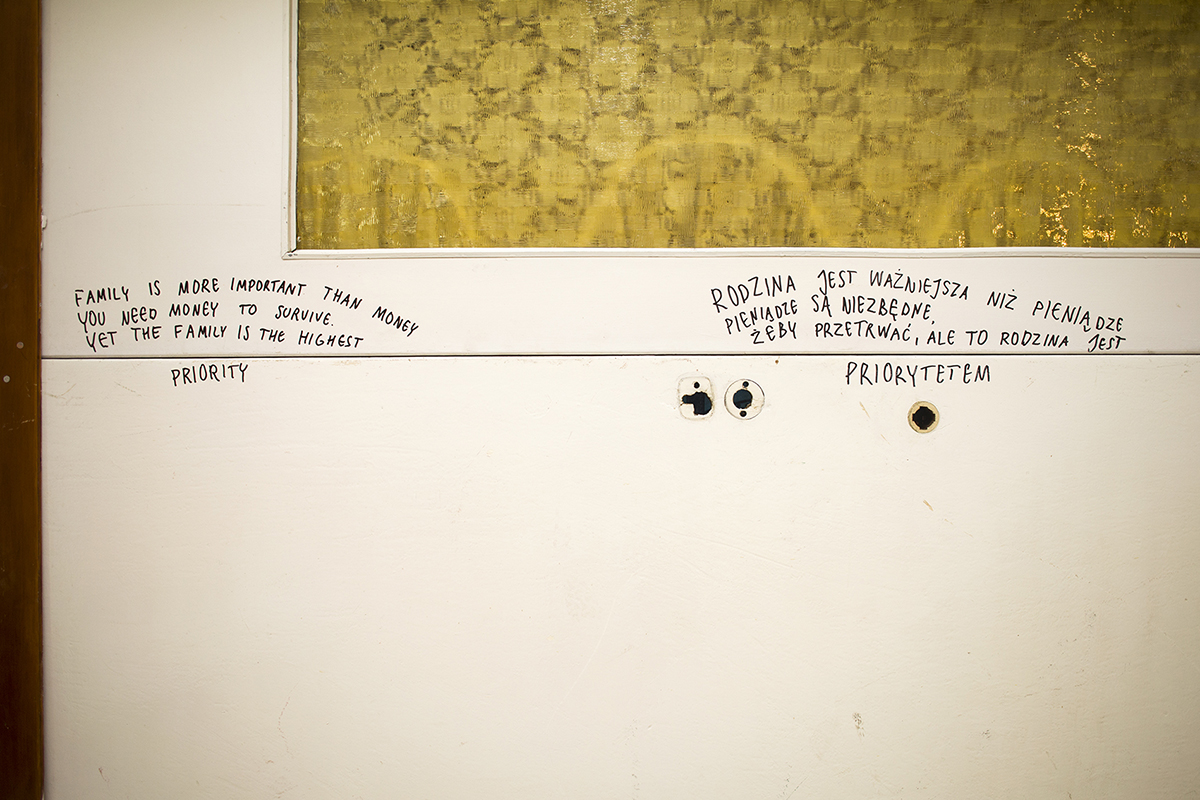 FAMILY IS MORE IMPORTANT THAN MONEY
YOU NEED MONEY TO SURVIVE.
YET THE FAMILY IS THE HIGHEST
PRIORITY
RODZINA JEST WAŻNIEJSZA NIŻ PIENIĄDZE
PIENIĄDZE SĄ NIEZBĘDNE,
ŻEBY PRZETRWAĆ, ALE TO RODZINA JEST
PRIORYTETEM